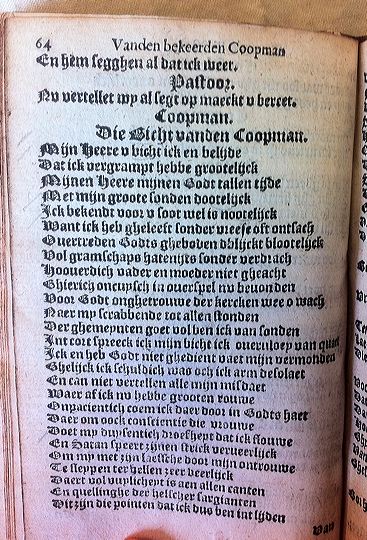 64 Vanden bekeerden Coopman
En hem segghen al dat ick weet.
Pastoor.
Nv vertellet my al segt op maeckt v bereet.
Coopman.
Die Bicht vanden Coopman.
Mijn Heere v bicht ick en belijde
Dat ick vergrampt hebbe grootelijck
Mijnen Heere mijnen Godt tallen tijde
Met mijn groote sonden dootelijck
Ick bekendt voor v soot wel is nootelijck
Want ick heb gheleeft sonder vreese oft ontsach
Overtreden Godts gheboden dblijckt blootelijck
Vol gramschaps hatenijts sonder verdrach
Hooverdich vader en moeder niet gheacht
Ghierich oncupsch in overspel nv bevonden
Voor Godt onghetrouwe der kercken wee o wach
Naer my scrabbende tot allen stonden
Der ghemeynten goet vol ben ick van sonden
Int cort spreeck ick mijn bicht ick overvloep van quaet
Ick en heb Godt niet ghedient naer mijn vermonden
Ghelijck ick schuldich was och ick arm desolaet
En can niet vertellen alle mijn misdaet
Waer af ick nv hebbe grooten rouwe
Onpacientich coem ick daer door in Godts haet
Daer om oock conscientie die vrouwe
Doet my duysentich droefheyt dat ick flouwe
En Satan speert zijnen strick verveerlijck
Om my met zijn laetsche door mijn ontrouwe
Te sleppen ter hellen zeer deerlijck
Daert vol puylicheyt is aen allen canten
En quellinghe der helscher sargianten
Dit zijn die pointen dat ick dus ben int lijden
Van